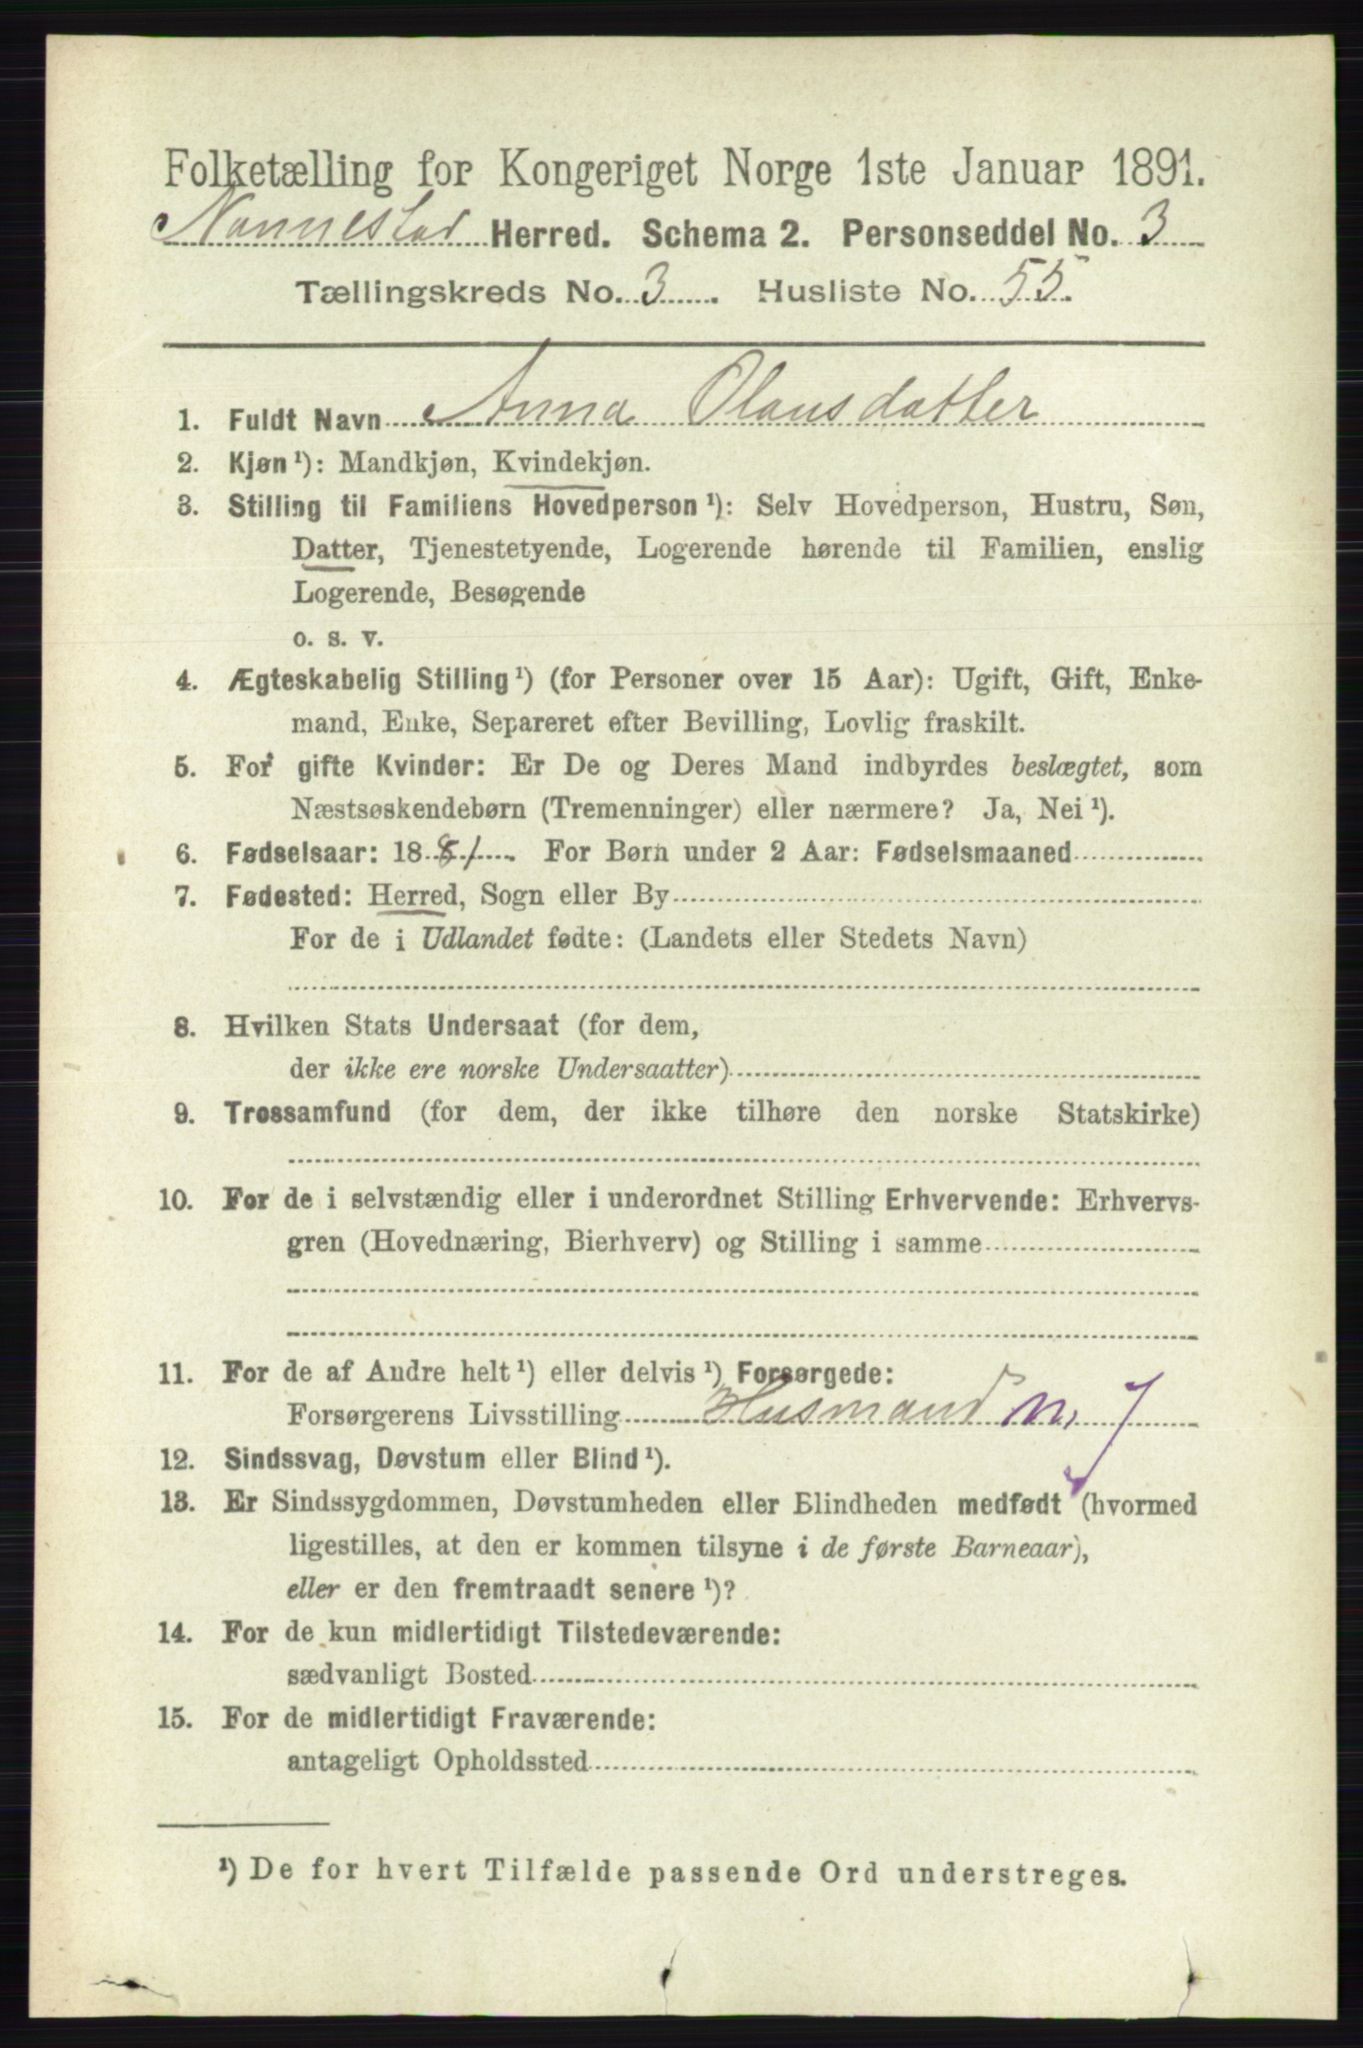 Folketælling for Kongeriget Norge 1ste Januar 1891.
Nannestad Herred. Schema 2. Personseddel No. 3
Tællingskreds No. 3. Husliste No. 55.
1. Fuldt Navn Anna Olausdatter
2. Kjøn ¹): Mandkjøn, Kvindekjøn.
3. Stilling til Familiens Hovedperson ¹): Selv Hovedperson, Hustru, Søn,
Datter, Tjenestetyende, Logerende hørende til Familien, enslig
Logerende, Besøgende
o. s. v.
4. Ægteskabelig Stilling ¹) (for Personer over 15 Aar): Ugift, Gift, Enke-
mand, Enke, Separeret efter Bevilling, Lovlig fraskilt.
5. For gifte Kvinder: Er De og Deres Mand indbyrdes beslægtet, som
Næstsøskendebørn (Tremenninger) eller nærmere? Ja, Nei ¹).
6. Fødselsaar: 1881. For Børn under 2 Aar: Fødselsmaaned
7. Fødested: Herred, Sogn eller By
For de i Udlandet fødte: (Landets eller Stedets Navn)
8. Hvilken Stats Undersaat (for dem,
der ikke ere norske Undersaatter)
9. Trossamfund (for dem, der ikke tilhøre den norske Statskirke)
10. For de i selvstændig eller i underordnet Stilling Erhvervende: Erhvervs-
gren (Hovednæring, Bierhverv) og Stilling i samme
11. For de af Andre helt ¹) eller delvis ¹) Forsørgede:
Forsørgerens Livsstilling Husmand m. J
12. Sindssvag, Døvstum eller Blind ¹).
13. Er Sindssygdommen, Døvstumheden eller Blindheden medfødt (hvormed
ligestilles, at den er kommen tilsyne i de første Barneaar),
eller er den fremtraadt senere ¹)?
14. For de kun midlertidigt Tilstedeværende:
sædvanligt Bosted
15. For de midlertidigt Fraværende:
antageligt Opholdssted
¹) De for hvert Tilfælde passende Ord understreges.